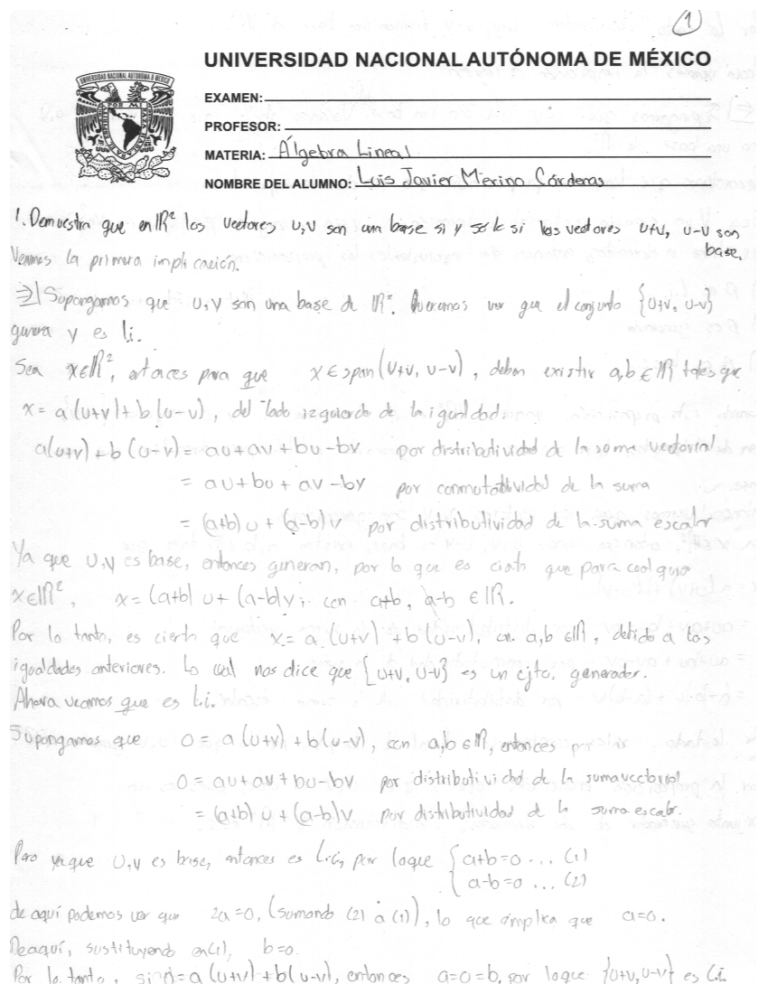 (1)
UNIVERSIDAD NACIONAL AUTÓNOMA DE MÉXICO
EXAMEN:
PROFESOR:
MATERIA: Álgebra Lineal
NOMBRE DEL ALUMNO: Luis Javier Merino Cárdenas
1. Demuestra que en ℝ² los vectores u,v son una base si y solo si los vectores u+v, u-v son
base.
Veamos la primera implicación.
⇒| Supongamos que u,v son una base de ℝ². Queremos ver que el conjunto {u+v, u-v}
genera y es l.i.
Sea x∈ℝ², entonces para que x∈span(u+v, u-v), deben existir a,b∈ℝ tales que
x = a(u+v)+b(u-v), del lado izquierdo de la igualdad:
a(u+v)+b(u-v) = au+av+bu-bv por distributividad de la suma vectorial
= au+bu+av-bv por conmutatividad de la suma
= (a+b)u+(a-b)v por distributividad de la suma escalar
Ya que u,v es base, entonces generan, por lo que es cierto que para cualquier
x∈ℝ², x=(a+b)u+(a-b)v; con a+b, a-b ∈ℝ.
Por lo tanto, es cierto que x=a(u+v)+b(u-v), con a,b∈ℝ, debido a las
igualdades anteriores. Lo cual nos dice que {u+v, u-v} es un cjto. generador.
Ahora veamos que es l.i.
Supongamos que 0 = a(u+v)+b(u-v), con a,b∈ℝ, entonces
0 = au+av+bu-bv por distributividad de la suma vectorial
= (a+b)u+(a-b)v por distributividad de la suma escalar.
Pero ya que u,v es base, entonces es l.i., por lo que { a+b=0 ... (1)
a-b=0 ... (2)
de aquí podemos ver que 2a=0, (sumando (2) a (1)), lo que implica que a=0.
De aquí, sustituyendo en (1), b=0.
Por lo tanto, si 0=a(u+v)+b(u-v), entonces a=0=b, por lo que {u+v,u-v} es l.i.